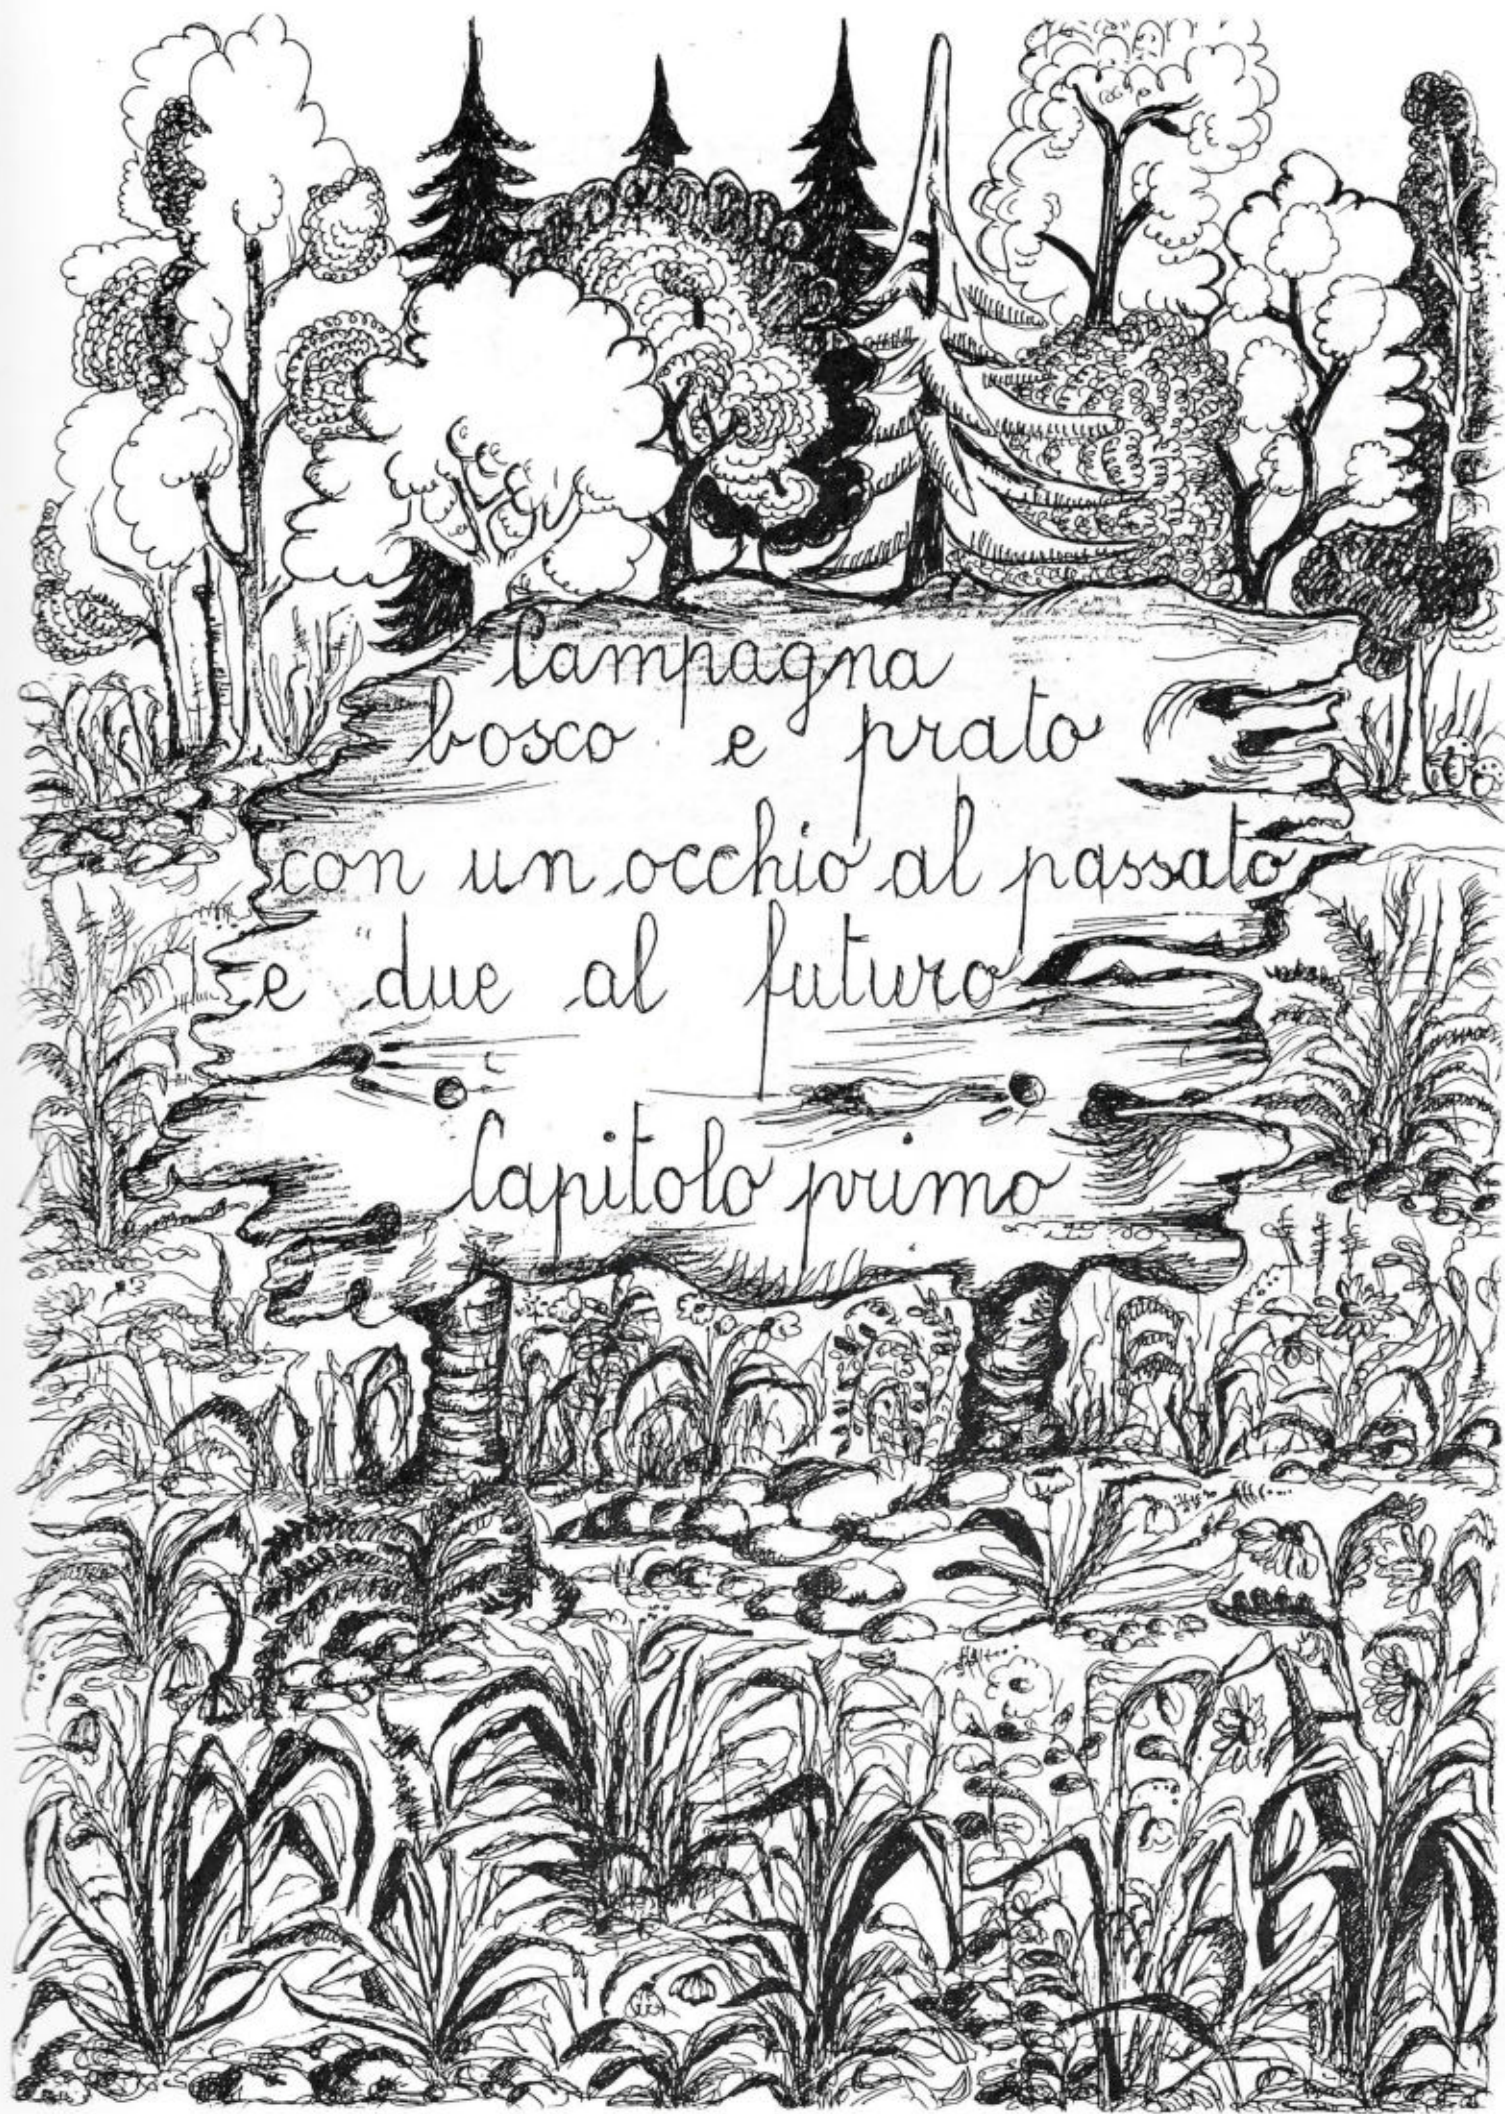 Campagna
bosco e prato
con un occhio al passato
e due al futuro
Capitolo primo